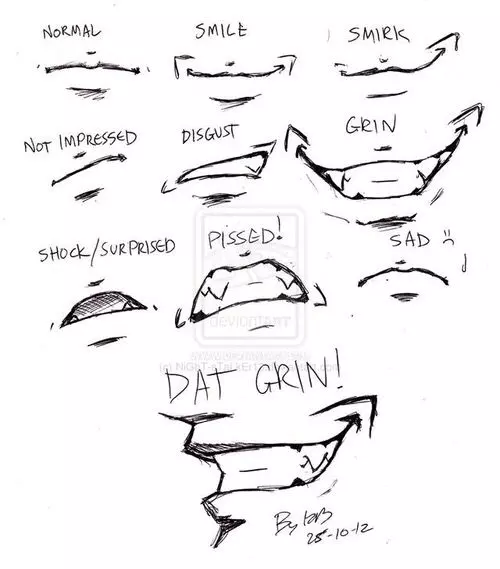 NORMAL
SMILE
SMIRK
NOT IMPRESSED
DISGUST
GRIN
SHOCK/SURPRISED
PISSED!
SAD :(
deviantART
DAT GRIN!
By
25-10-12